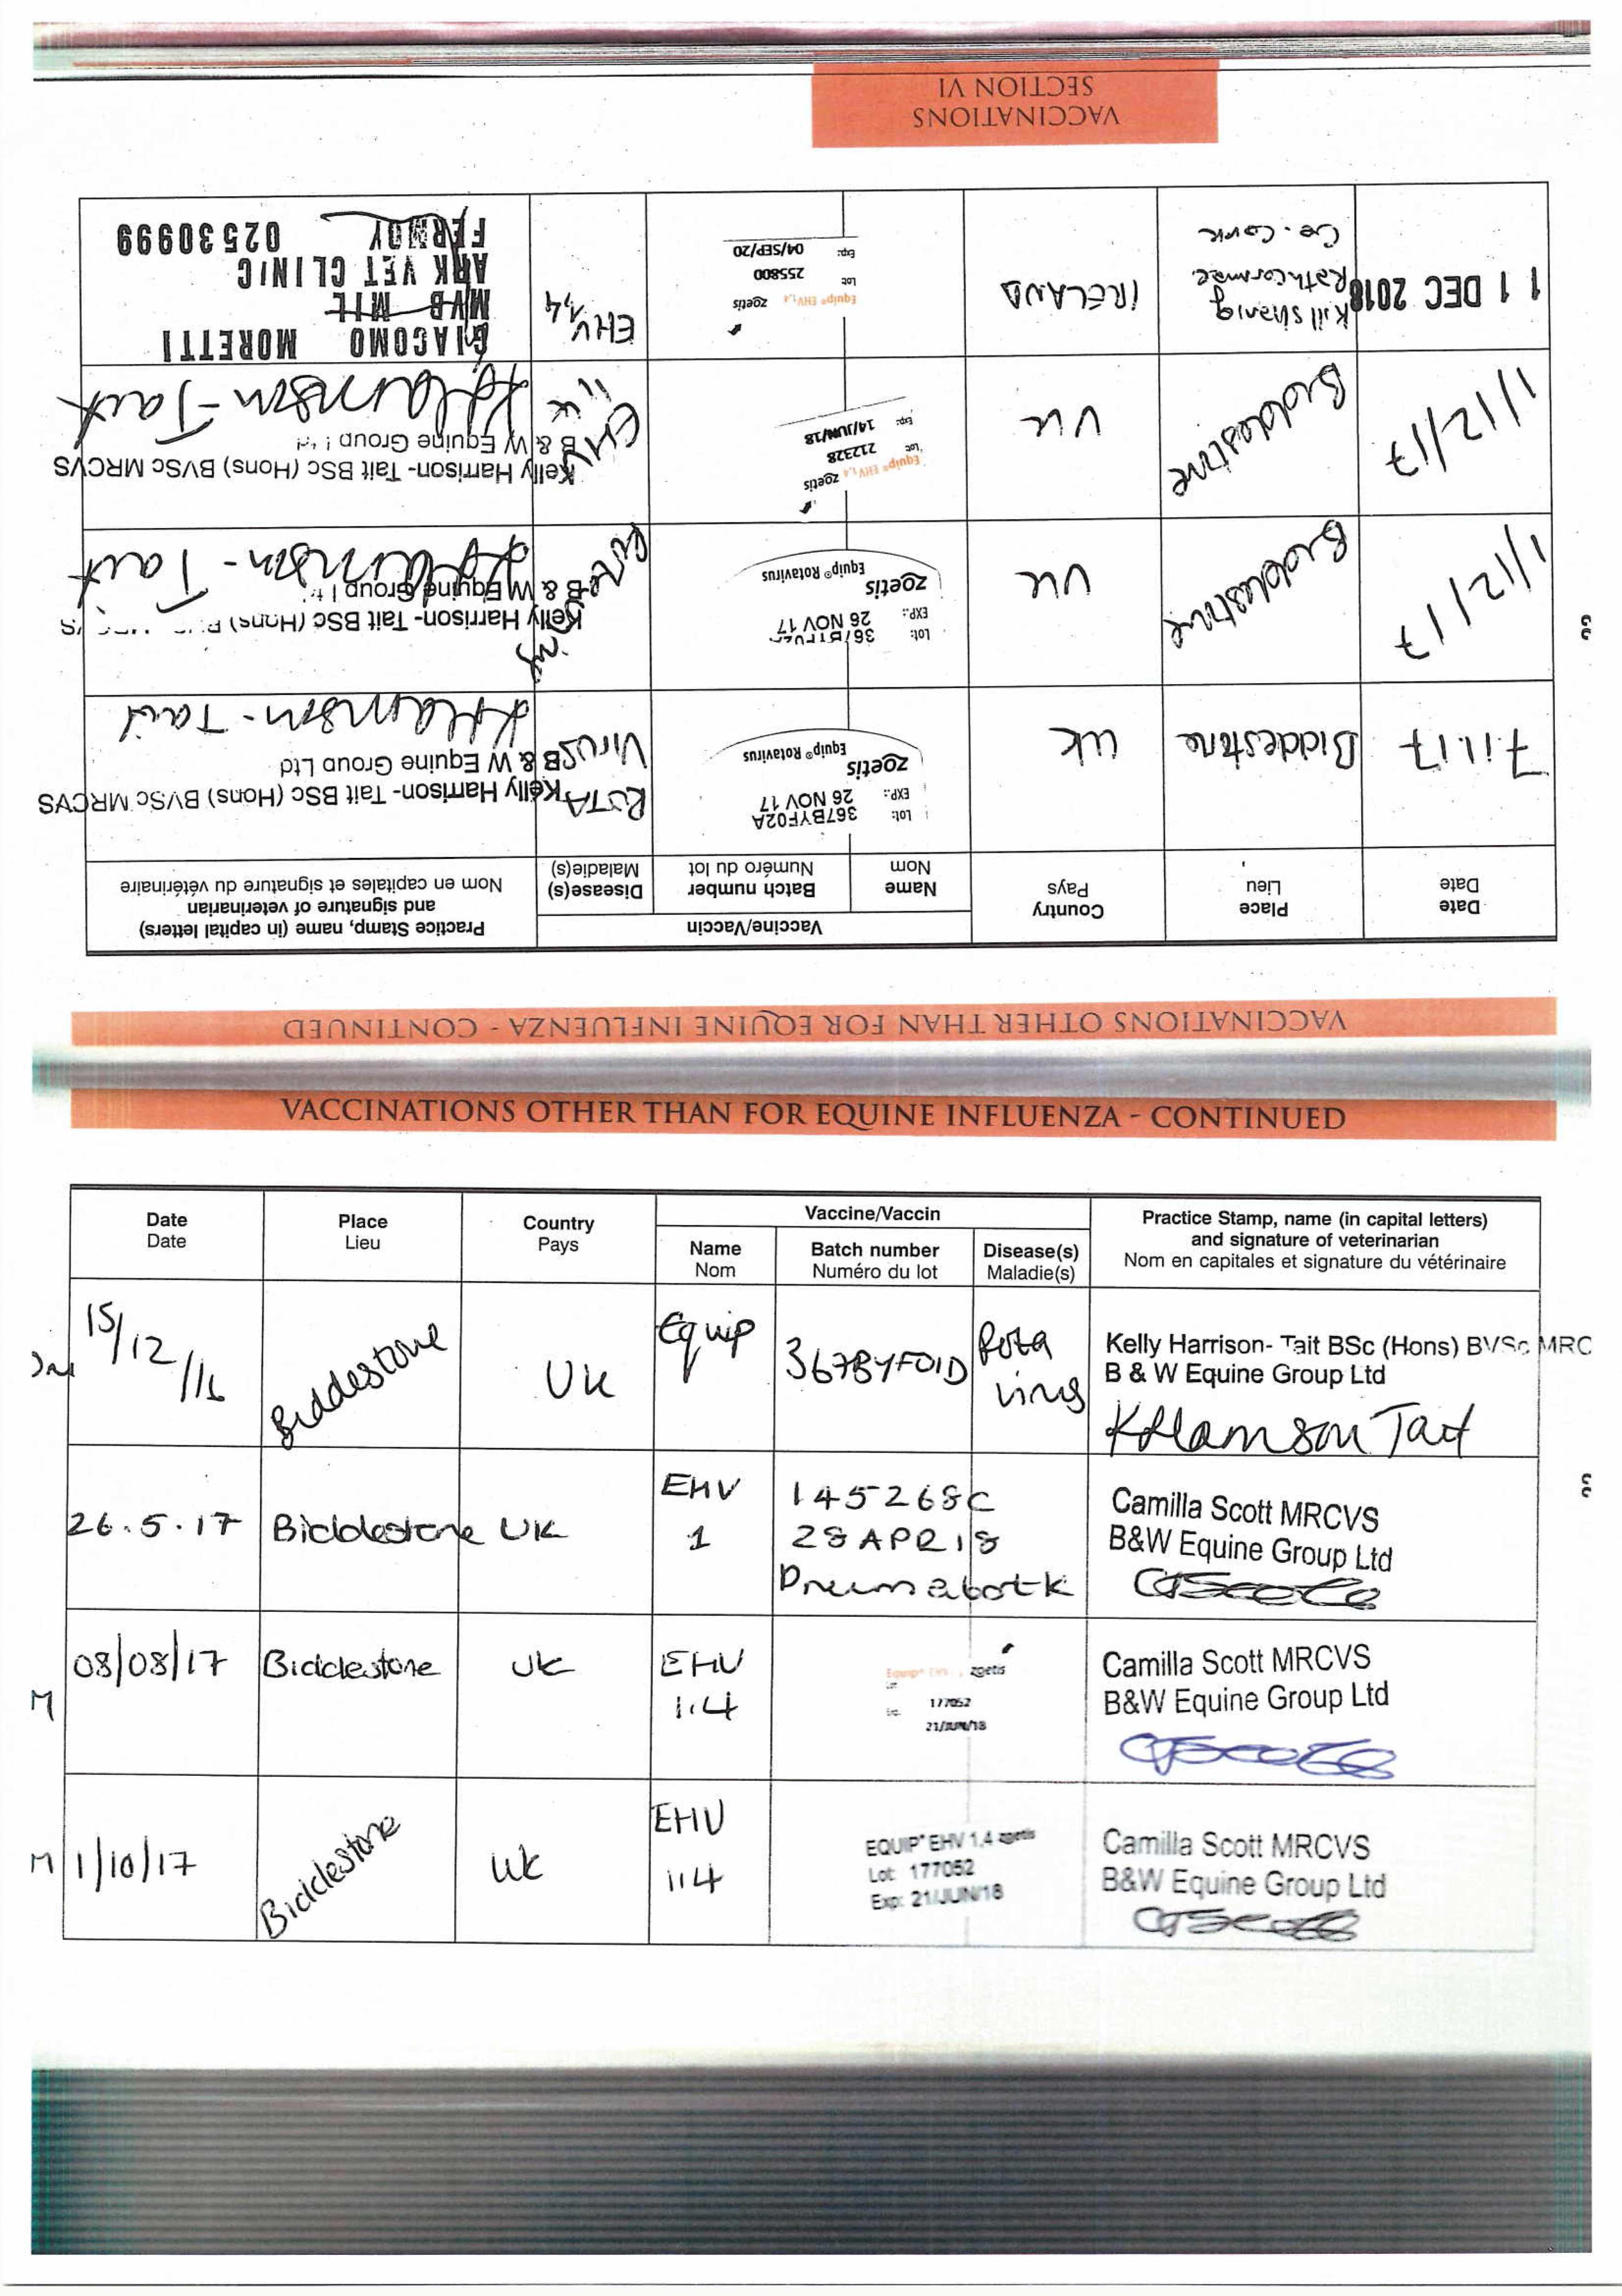 VACCINATIONS
SECTION VI
VACCINATIONS OTHER THAN FOR EQUINE INFLUENZA - CONTINUED
Date
Date
Place
Lieu
Country
Pays
Vaccine/Vaccin
Name
Nom
Batch number
Numéro du lot
Disease(s)
Maladie(s)
Practice Stamp, name (in capital letters)
and signature of veterinarian
Nom en capitales et signature du vétérinaire
7.11.17
Biddestone
UK
Lot: 367BYF02A
EXP.: 26 NOV 17
zoetis
Equip® Rotavirus
ROTA
VIRUS
Kelly Harrison- Tait BSc (Hons) BVSc MRCVS
B & W Equine Group Ltd
KHarrison-Tait
1/12/17
Biddestone
UK
Lot:
EXP.: 26 NOV 17
zoetis
Equip® Rotavirus
Kelly Harrison- Tait BSc (Hons)
B & W Equine Group
KHarrison-Tait
1/12/17
Biddestone
UK
Equip® EHV 1,4 zoetis
Lot: 212328
Exp: 14/JUN/18
EHV
Kelly Harrison- Tait BSc (Hons) BVSc MRCVS
B & W Equine Group
KHarrison-Tait
11 DEC 2018
Rathcormac
Co. Cork
IRELAND
Equip® EHV 1,4 zoetis
Lot 255800
Exp: 04/SEP/20
EHV
1,4
GIACOMO MORETTI
MVB
ARK VET CLINIC
FERMOY 02530999
VACCINATIONS OTHER THAN FOR EQUINE INFLUENZA - CONTINUED
Date
Date
Place
Lieu
Country
Pays
Vaccine/Vaccin
Name
Nom
Batch number
Numéro du lot
Disease(s)
Maladie(s)
Practice Stamp, name (in capital letters)
and signature of veterinarian
Nom en capitales et signature du vétérinaire
15/12/16
Biddestone
UK
Equip
367BYF01D
Rota
virus
Kelly Harrison- Tait BSc (Hons) BVSc MRC
B & W Equine Group Ltd
KHarrison Tait
26.5.17
Biddestone
UK
EHV
1
145268C
28APR18
Pneumabort K
Camilla Scott MRCVS
B&W Equine Group Ltd
M
08/08/17
Biddestone
UK
EHV
1.4
zoetis
177052
21/JUN/18
Camilla Scott MRCVS
B&W Equine Group Ltd
M
1/10/17
Biddestone
UK
EHV
1,4
EQUIP® EHV 1.4 zoetis
Lot: 177052
Exp: 21/JUN/18
Camilla Scott MRCVS
B&W Equine Group Ltd